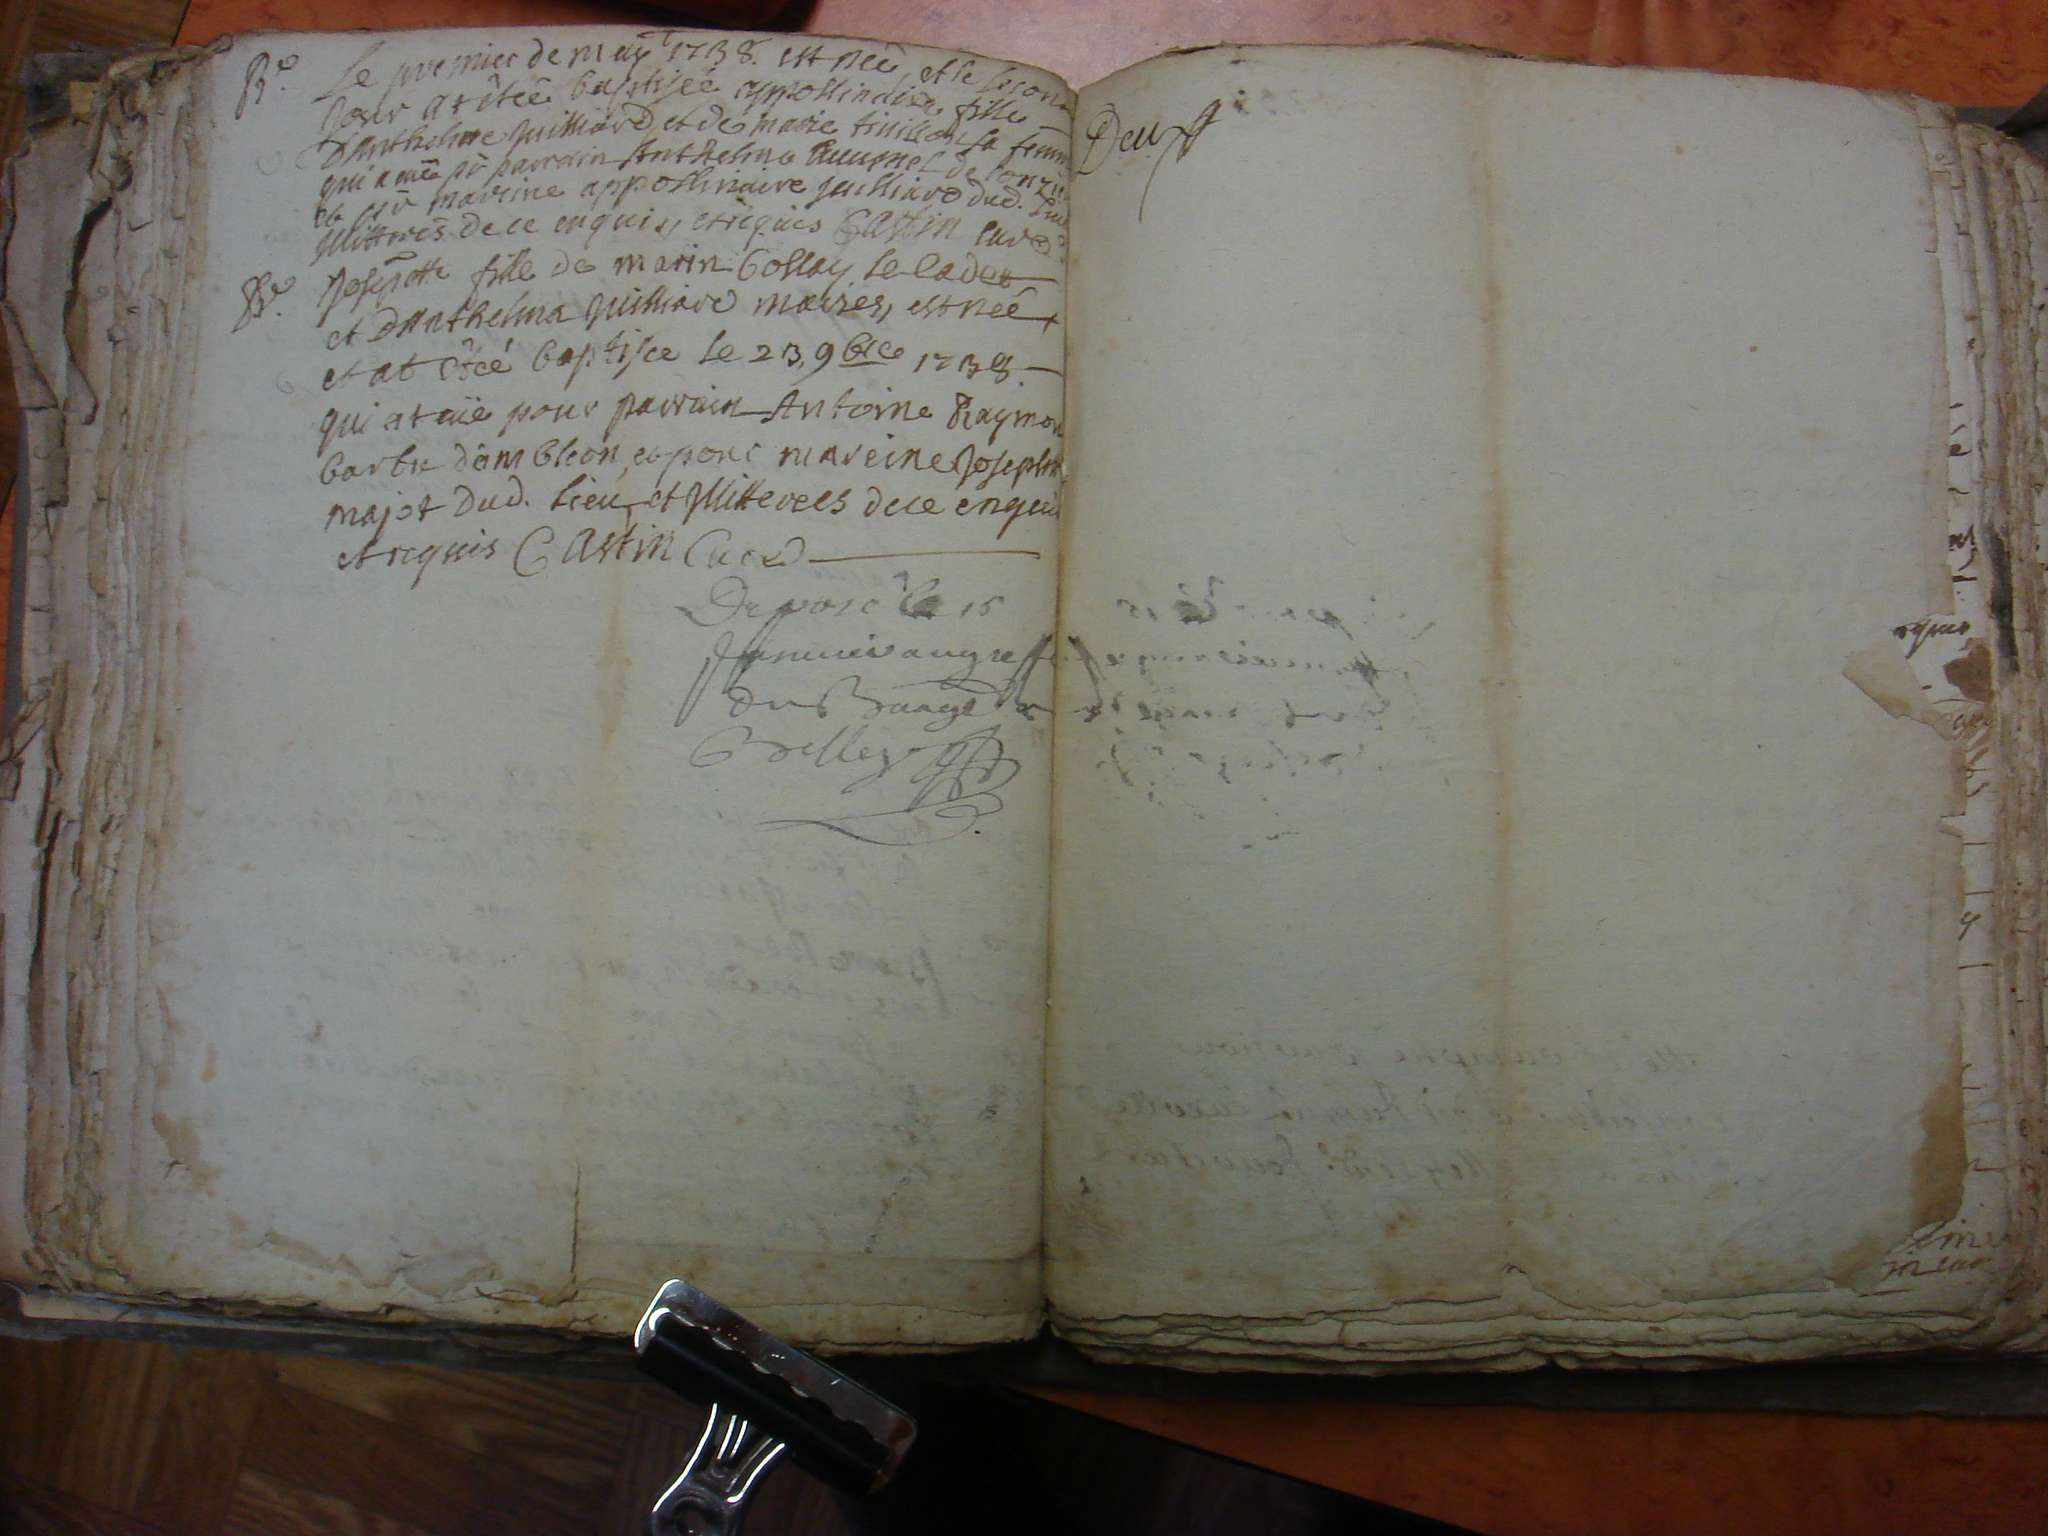 Be. Le premier de may 1738. est née et le second
jour at étée baptisée appollinaire fille
d'Anthelme Juilliard et de marie tinillon sa femme
qui a eüe pr parrain Anthelme de Conzieu
et pr mareine appollinaire Juilliard dud. lieu
Jllitterés de ce enquis, et requis Castin curé
Be. Josephte fille de marin Collay le cadet
et d'Anthelma Juilliard mariés, est née
et at étéé baptisée le 23, 9bre 1738.
qui at eüe pour parrain Antoine Raymon
barbu d'ambleon, et pour mareine Josephte
majot dud. lieu et Jllitterées de ce enquis
et requis Castin Curé
Deposé le 15
Janvier au greffe
du Baage de
Belley
Deux